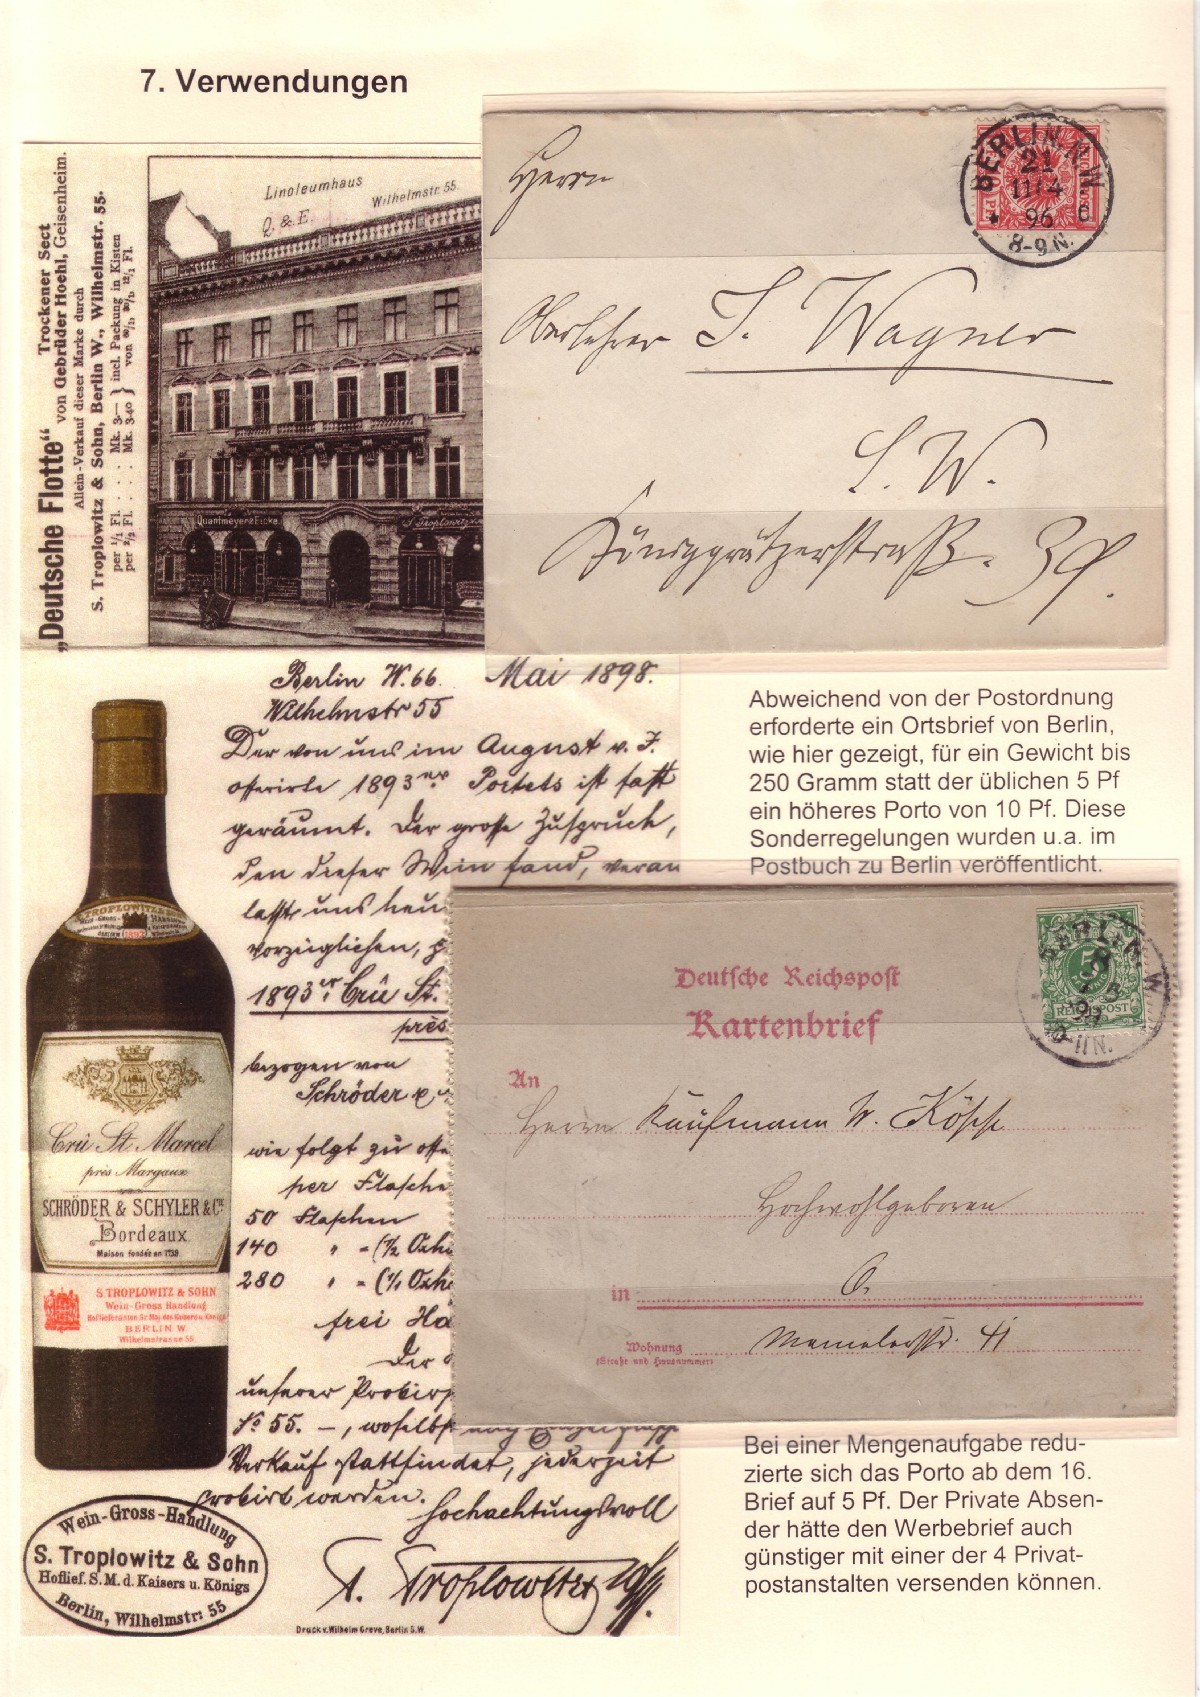 7. Verwendungen
„Deutsche Flotte“ Trockener Sect
von Gebrüder Hoehl, Geisenheim.
Allein-Verkauf dieser Marke durch
S. Troplowitz & Sohn, Berlin W., Wilhelmstr. 55.
per 1/1 Fl. : : Mk. 3.— } incl. Packung in Kisten
per 2/2 Fl. : : Mk. 3.40 } von
Linoleumhaus
Q. & E. Wilhelmstr. 55.
Quantmeyer & Eicke.
S. Troplowitz
BERLIN. N.W.
21
11/4
96
6
8-9N.
Herrn
Oberlehrer J. Wagner
S. W.
Königgrätzerstraß. 39.
Berlin W. 66. Mai 1898.
Wilhelmstr 55
Der von uns im August v. J.
offerirte 1893er Portets ist fast
geräumt. Der große Zuspruch,
den dieser Wein fand, veran
laßte uns heu
vorzüglichen,
1893er Crû St.
près
bezogen von
Schröder &
wie folgt zu offe
per Flasche
50 Flaschen
140 " = (1/2 Oxh
280 " = (1/1 Oxh
frei Ha
Der
unserer Probir
No 55. –, woselbst
Verkauf stattfindet, jederzeit
probirt werden.
Hochachtungsvoll
S. Troplowitz & Sohn
Druck v. Wilhelm Greve, Berlin S.W.
S. TROPLOWITZ & SOHN
WEIN-GROSS-HANDLUNG
1893
Crû St. Marcel
près Margaux
SCHRÖDER & SCHYLER & Cie
Bordeaux
Maison fondée en 1739
S. TROPLOWITZ & SOHN
Wein-Gross Handlung
Hoflieferanten Sr. Maj. des Kaisers u. Königs
BERLIN W
Wilhelmstrasse 55
Wein-Gross-Handlung
S. Troplowitz & Sohn
Hoflief. S. M. d. Kaisers u. Königs
Berlin, Wilhelmstr: 55
Abweichend von der Postordnung
erforderte ein Ortsbrief von Berlin,
wie hier gezeigt, für ein Gewicht bis
250 Gramm statt der üblichen 5 Pf
ein höheres Porto von 10 Pf. Diese
Sonderregelungen wurden u.a. im
Postbuch zu Berlin veröffentlicht.
BERLIN
W
8
5
-11N.
5
PFENNIG
REICHSPOST
Deutsche Reichspost
Kartenbrief
An
Herrn Kaufmann W. Köppe
Hochwohlgeboren
in O.
Wohnung Memelerstr. 41
(Straße und Hausnummer)
Bei einer Mengenaufgabe redu-
zierte sich das Porto ab dem 16.
Brief auf 5 Pf. Der Private Absen-
der hätte den Werbebrief auch
günstiger mit einer der 4 Privat-
postanstalten versenden können.